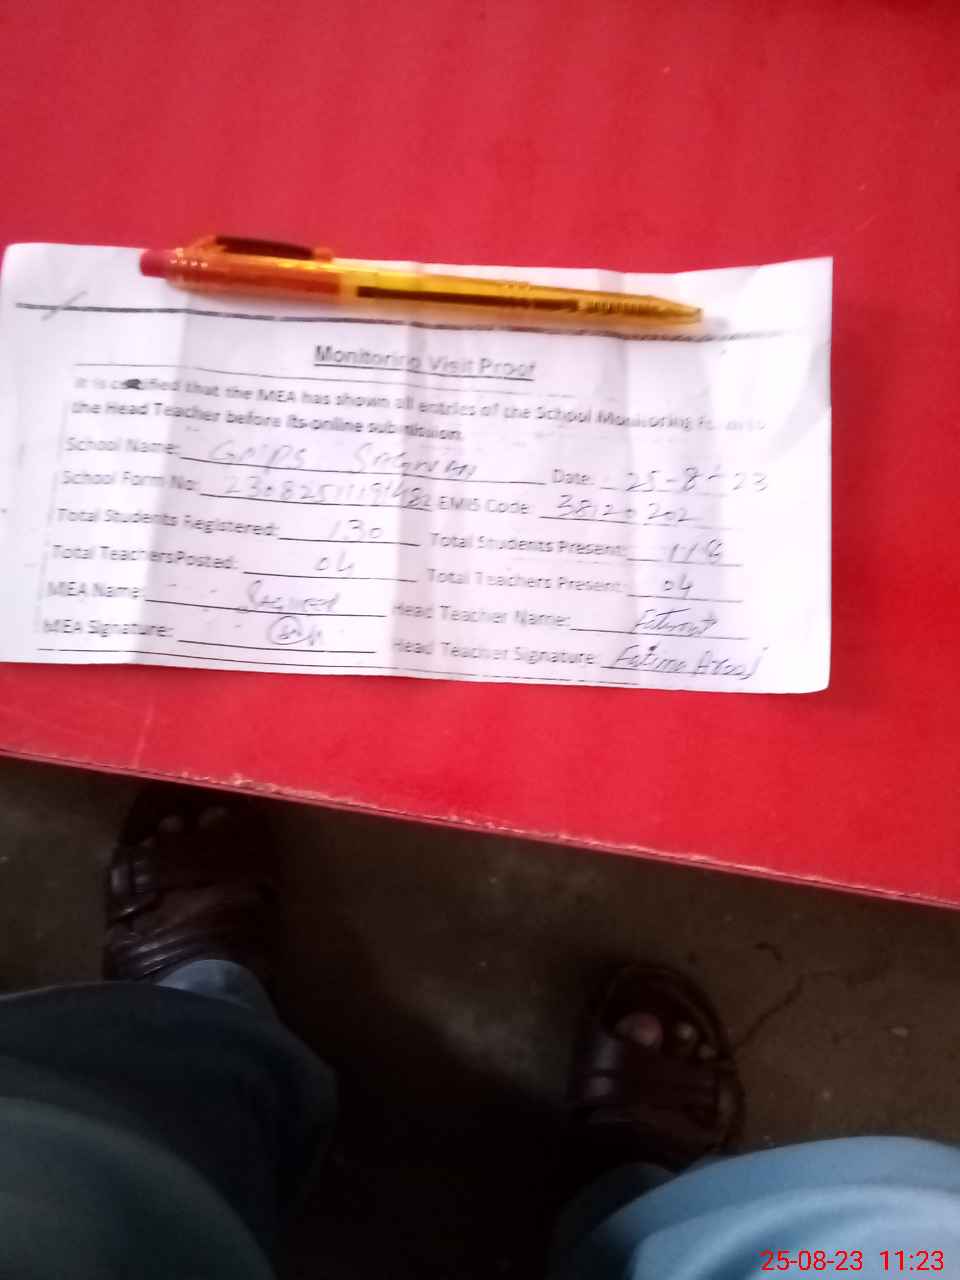 Monitoring Visit Proof
It is certified that the MEA has shown all entries of the School Monitoring Form to
the Head Teacher before its online submission.
School Name: GMPS Date: 25-8-23
School Form No: EMIS Code: 38120202
Total Students Registered: 130 Total Students Present: 116
Total Teachers Posted: 04 Total Teachers Present: 04
MEA Name: Head Teacher Name:
MEA Signature: Head Teacher Signature: Fatima
25-08-23 11:23